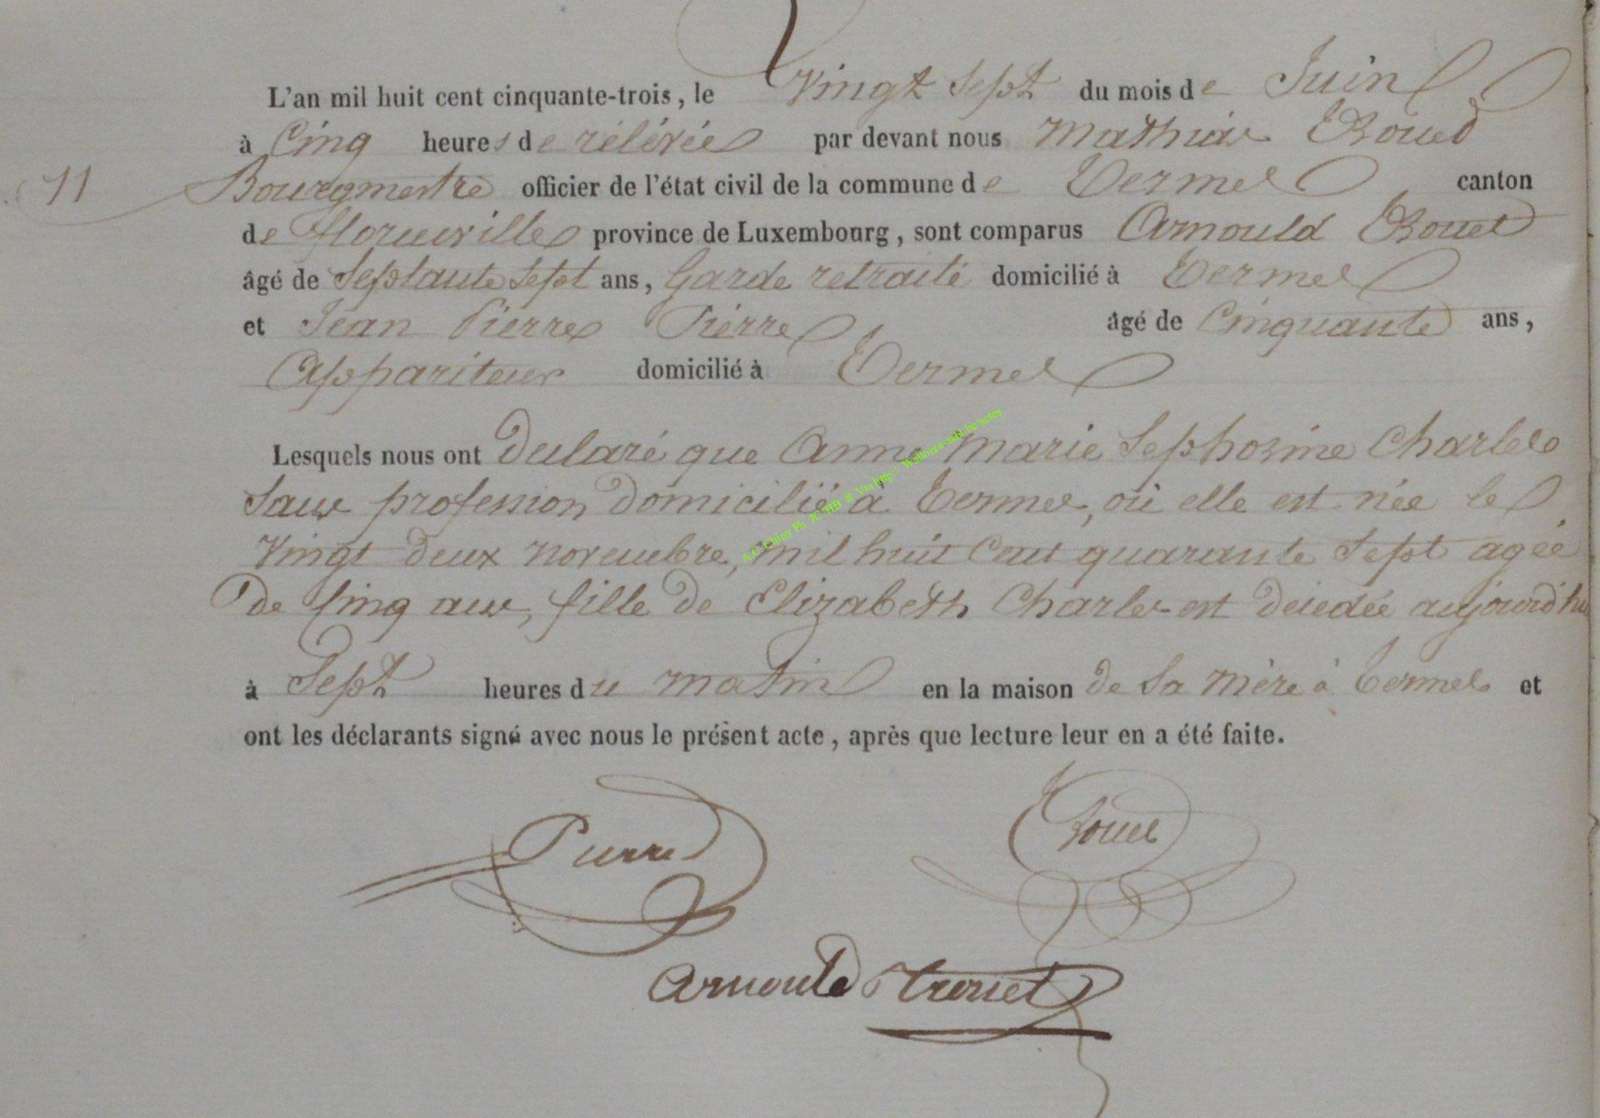 L'an mil huit cent cinquante-trois, le Vingt Sept du mois de Juin
à Cinq heures de rélévée par devant nous Mathias Trouet
11 Bourgmestre officier de l'état civil de la commune de Termes canton
de Florenville province de Luxembourg, sont comparus Arnould Trouet
âgé de Septante Sept ans, Garde retraité domicilié à Termes
et Jean Pierre Pierre âgé de Cinquante ans,
Appariteur domicilié à Termes
Lesquels nous ont Déclaré que Anne Marie Sephosine Charles
Sans profession domiciliée à Termes, où elle est née le
Vingt deux novembre, mil huit Cent quarante Sept agée
De Cinq ans, fille de Elizabeth Charles est décédée aujourd'hui
à Sept heures du matin en la maison de Sa Mère à Termes et
ont les déclarants signé avec nous le présent acte, après que lecture leur en a été faite.
Pierre Trouet
Arnould Trouet